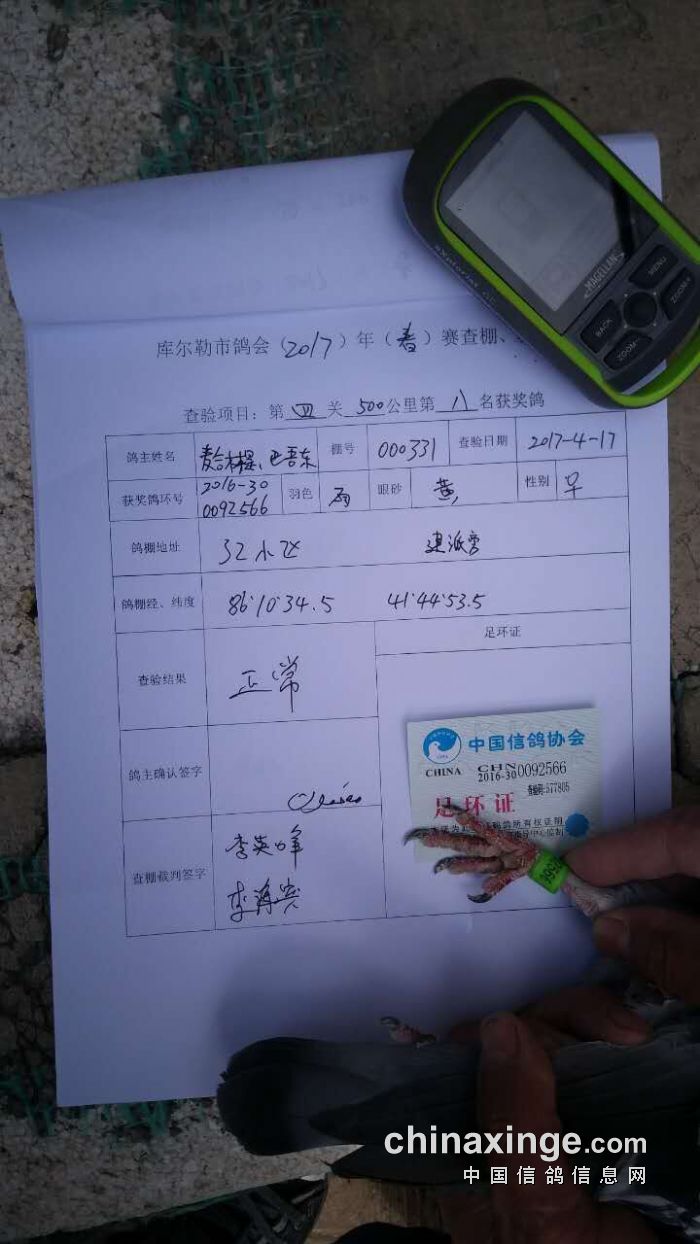 MAGELLAN
explorist GC
MENU
BACK
ZOOM+
ZOOM-
库尔勒市鸽会（2017）年（春）赛查棚、
查验项目：第 四 关 500公里第 八 名获奖鸽
鸽主姓名 棚号 000331 查验日期 2017-4-17
获奖鸽环号 2016-30 0092566 羽色 雨 眼砂 黄 性别 早
鸽棚地址 32小区
鸽棚经、纬度 86°10′34.5 41°44′53.5
查验结果 正常 足环证
鸽主确认签字
查棚裁判签字 李英峰
李海宾
中国信鸽协会
CHINA CHN 2016-30 0092566
查编码:577805
足环证
chinaxinge.com
中国信鸽信息网